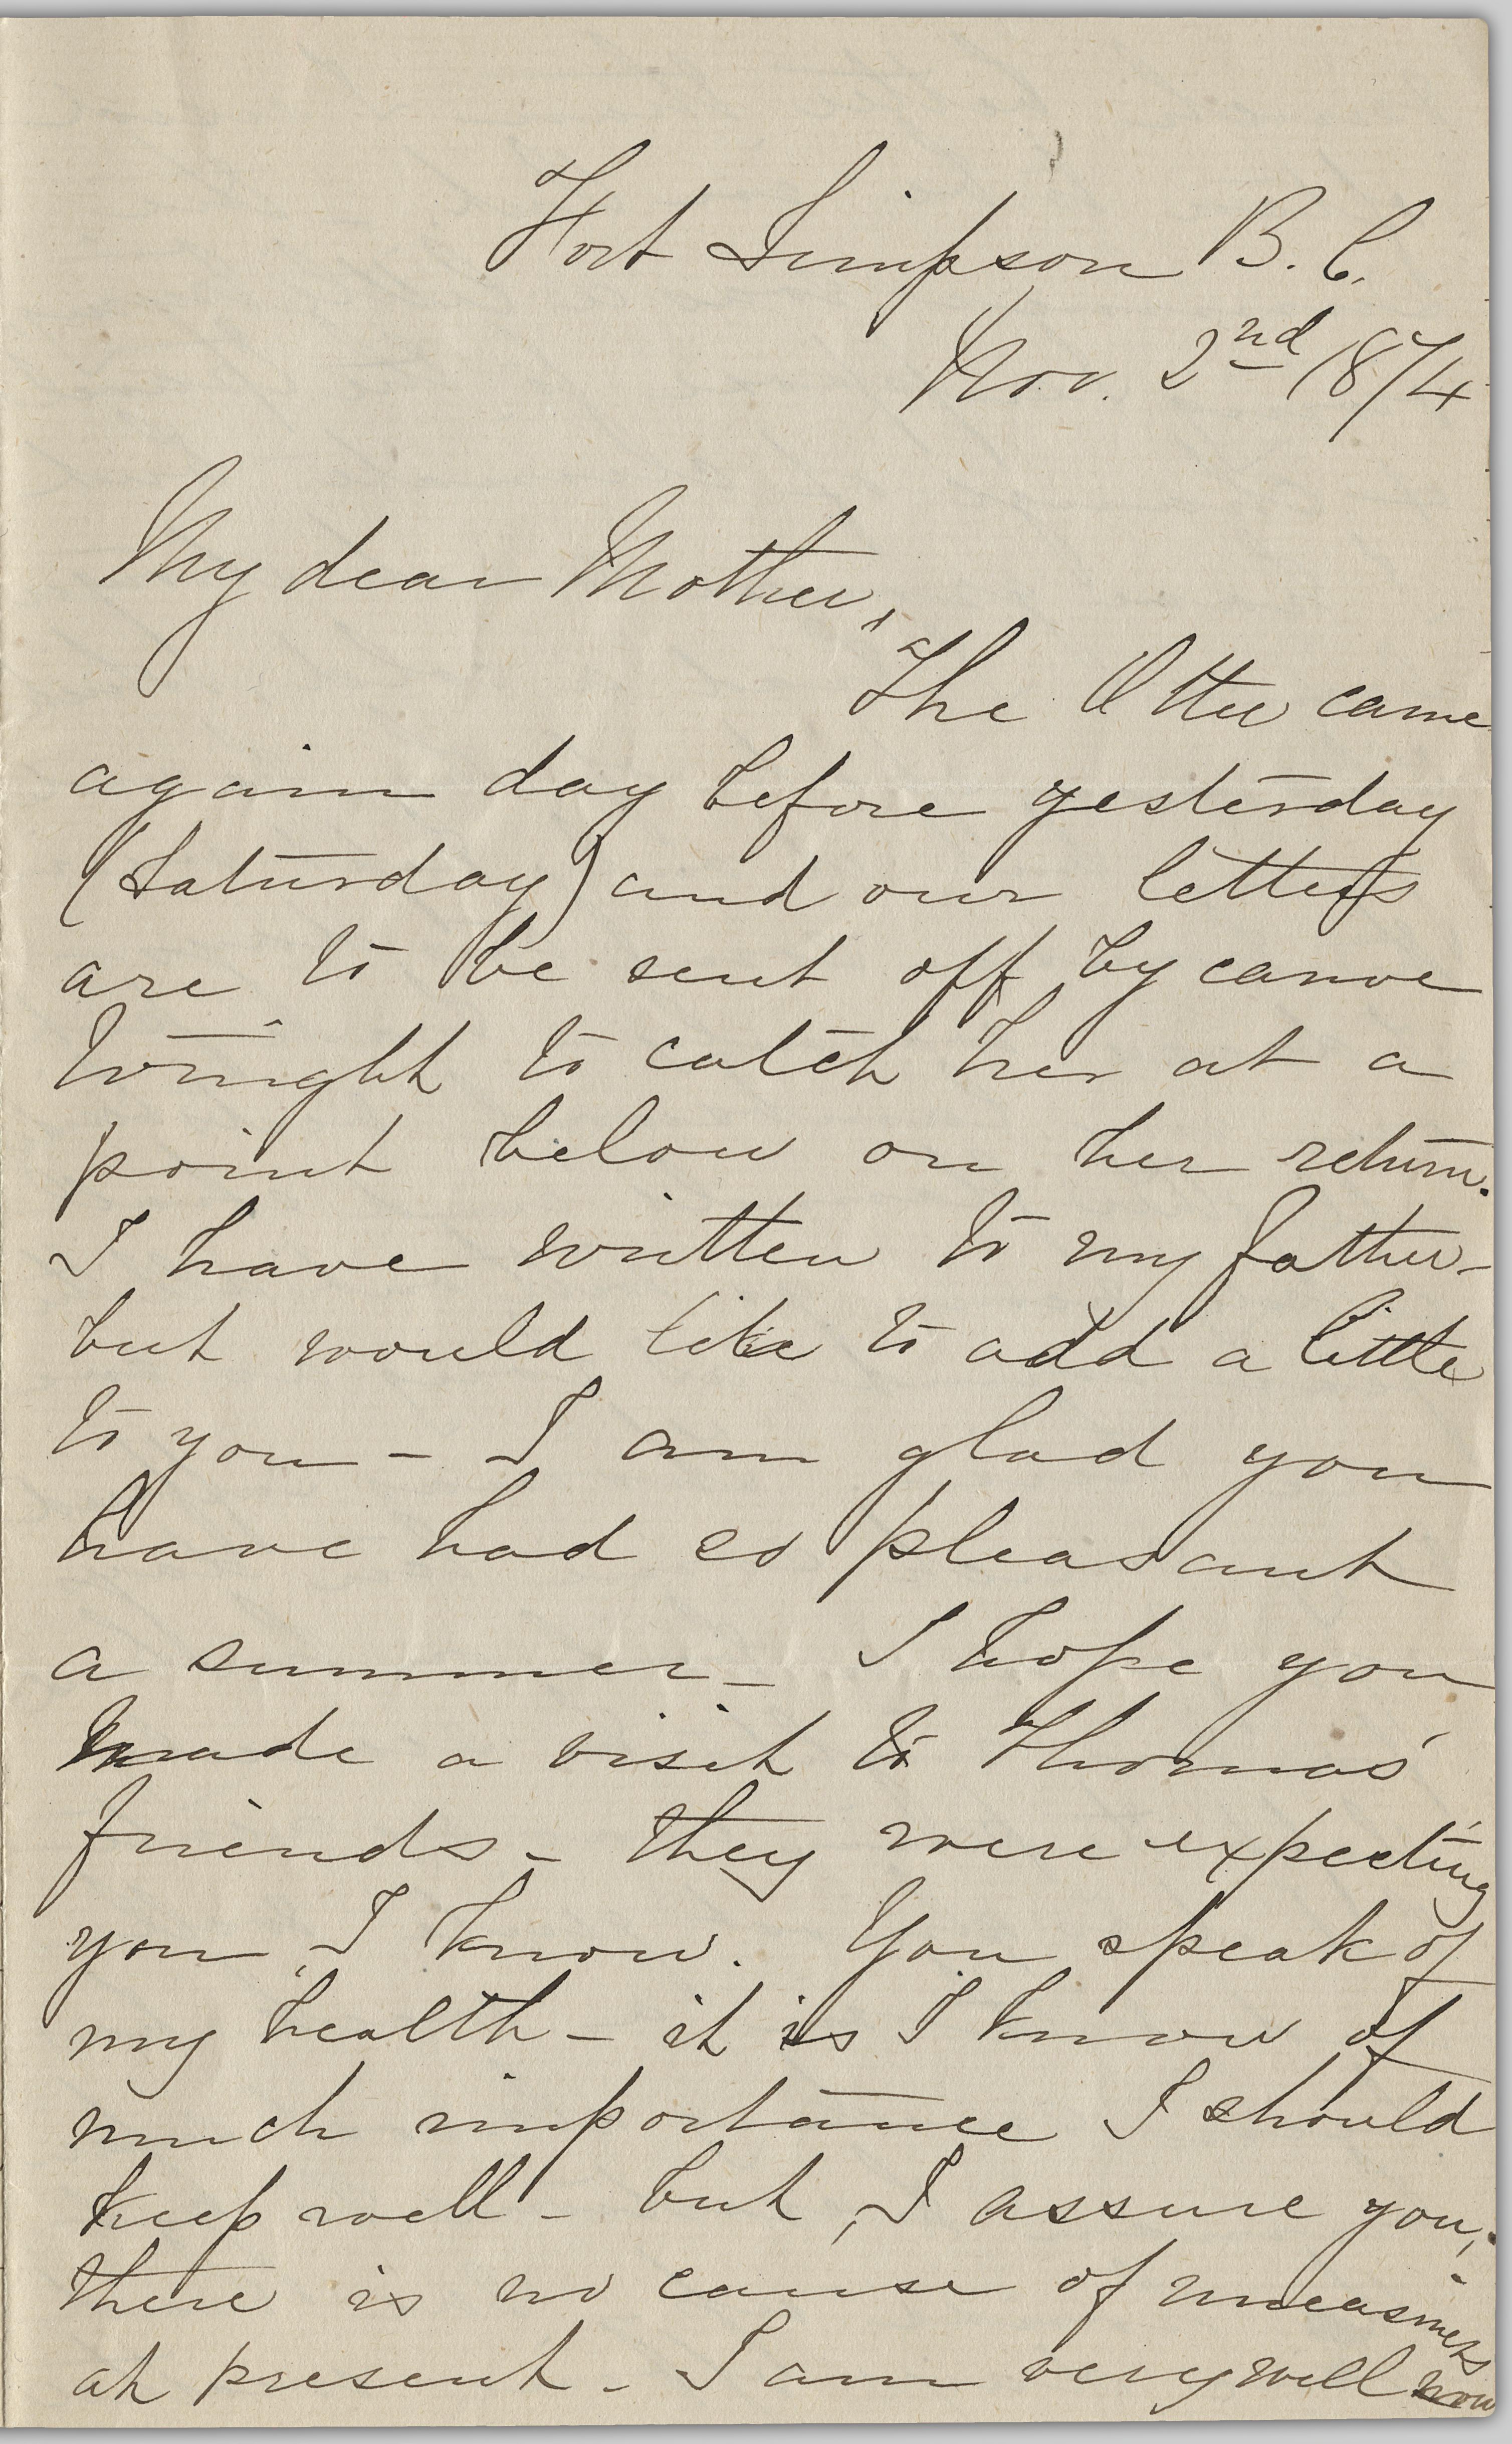 Fort Simpson B.C.
Nov. 2nd 1874
My dear Mother,
The Otter came
again day before yesterday
(Saturday) and our letters
are to be sent off by canoe
tonight to catch her at a
point below on her return.
I have written to my father -
but would like to add a little
to you - I am glad you
have had so pleasant
a summer - I hope you
made a visit to Thomas'
friends - they were expecting
you, I know. You speak of
my health - it is I know of
much importance I should
keep well - but, I assure you,
there is no cause of uneasiness
at present - I am very well now